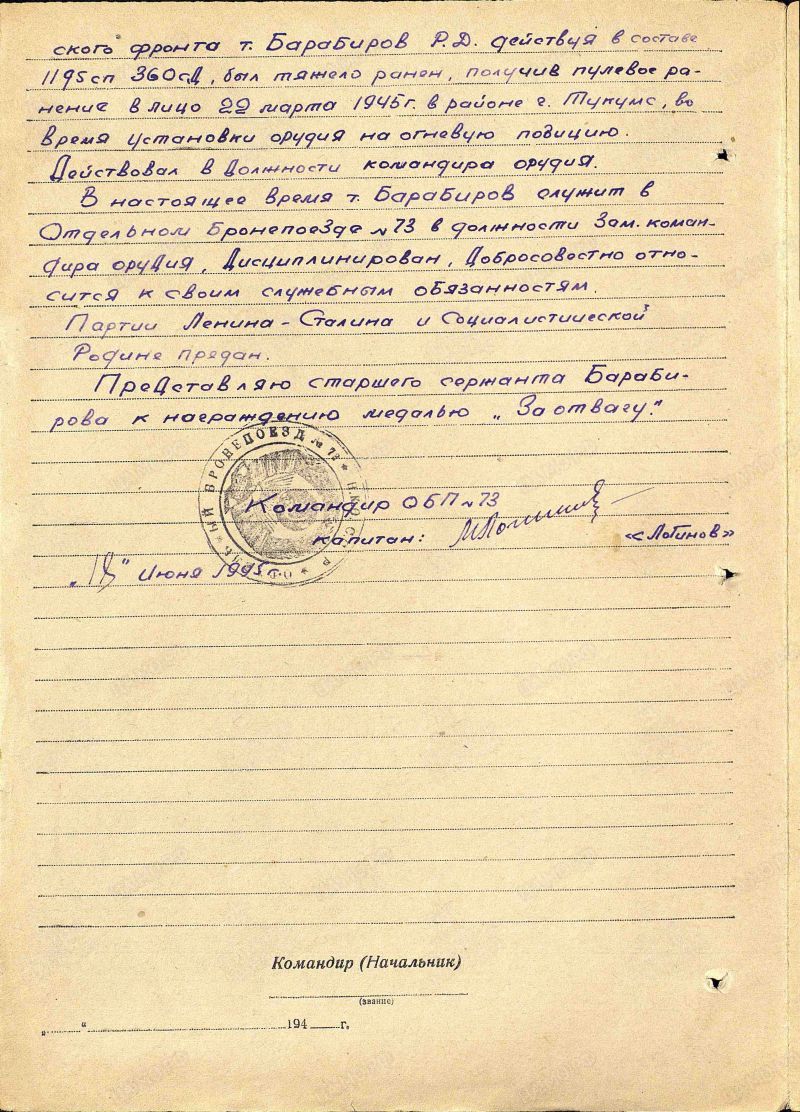 ского фронта т. Барабиров Р.Д. действуя в составе
1195сп 360сд, был тяжело ранен, получив пулевое ра-
нение в лицо 22 марта 1945г. в районе г. Тукумс, во
время установки орудия на огневую позицию.
Действовал в должности командира орудия.
В настоящее время т. Барабиров служит в
Отдельном Бронепоезде №73 в должности Зам. коман-
дира орудия, Дисциплинирован, Добросовестно отно-
сится к своим служебным обязанностям.
Партии Ленина-Сталина и Социалистической
Родине предан.
Представляю старшего сержанта Бараби-
рова к награждению медалью „За отвагу".
БРОНЕПОЕЗД № 73 *
Командир ОБП №73
капитан:
«Логинов»
Июня 1945г.
Командир (Начальник)
(звание)
„ “ 194 г.